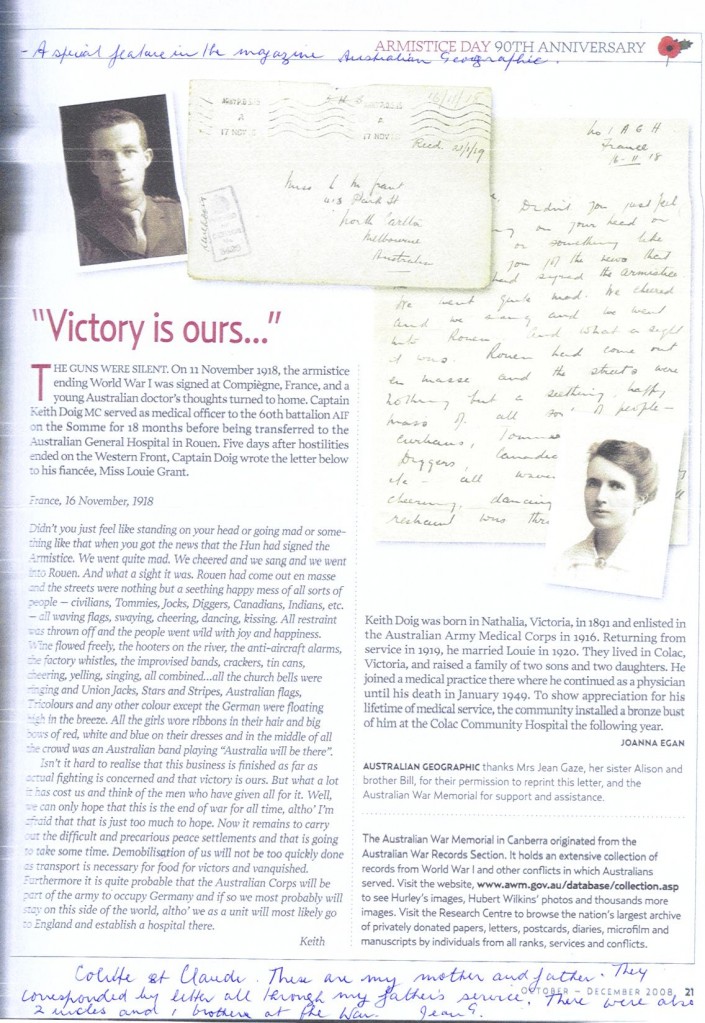 ARMISTICE DAY 90TH ANNIVERSARY
- A special feature in the magazine Australian Geographic.
17 NOV
17 NOV
Recd. 23/1/19
Miss L M Grant
North Carlton
Melbourne
Australia
No 1 A G H
France
16-11-18
Didn't you just feel
on your head or
or something like
you got the news that
had signed the Armistice
We went quite mad. We cheered
and we sang and we went
into Rouen. And what a sight
it was. Rouen had come out
en masse and the streets were
nothing but a seething happy
mass of all sorts of people –
civilians, Tommies
Diggers, Canadia
etc – all wavin
cheering, dancing
restraint was thro
"Victory is ours..."
THE GUNS WERE SILENT. On 11 November 1918, the armistice
ending World War I was signed at Compiègne, France, and a
young Australian doctor's thoughts turned to home. Captain
Keith Doig MC served as medical officer to the 60th battalion AIF
on the Somme for 18 months before being transferred to the
Australian General Hospital in Rouen. Five days after hostilities
ended on the Western Front, Captain Doig wrote the letter below
to his fiancée, Miss Louie Grant.
France, 16 November, 1918
Didn't you just feel like standing on your head or going mad or some-
thing like that when you got the news that the Hun had signed the
Armistice. We went quite mad. We cheered and we sang and we went
into Rouen. And what a sight it was. Rouen had come out en masse
and the streets were nothing but a seething happy mess of all sorts of
people – civilians, Tommies, Jocks, Diggers, Canadians, Indians, etc.
– all waving flags, swaying, cheering, dancing, kissing. All restraint
was thrown off and the people went wild with joy and happiness.
Wine flowed freely, the hooters on the river, the anti-aircraft alarms,
the factory whistles, the improvised bands, crackers, tin cans,
cheering, yelling, singing, all combined...all the church bells were
ringing and Union Jacks, Stars and Stripes, Australian flags,
Tricolours and any other colour except the German were floating
high in the breeze. All the girls wore ribbons in their hair and big
bows of red, white and blue on their dresses and in the middle of all
the crowd was an Australian band playing "Australia will be there".
Isn't it hard to realise that this business is finished as far as
actual fighting is concerned and that victory is ours. But what a lot
it has cost us and think of the men who have given all for it. Well,
we can only hope that this is the end of war for all time, altho' I'm
afraid that that is just too much to hope. Now it remains to carry
out the difficult and precarious peace settlements and that is going
to take some time. Demobilisation of us will not be too quickly done
as transport is necessary for food for victors and vanquished.
Furthermore it is quite probable that the Australian Corps will be
part of the army to occupy Germany and if so we most probably will
stay on this side of the world, altho' we as a unit will most likely go
to England and establish a hospital there.
Keith
Keith Doig was born in Nathalia, Victoria, in 1891 and enlisted in
the Australian Army Medical Corps in 1916. Returning from
service in 1919, he married Louie in 1920. They lived in Colac,
Victoria, and raised a family of two sons and two daughters. He
joined a medical practice there where he continued as a physician
until his death in January 1949. To show appreciation for his
lifetime of medical service, the community installed a bronze bust
of him at the Colac Community Hospital the following year.
JOANNA EGAN
AUSTRALIAN GEOGRAPHIC thanks Mrs Jean Gaze, her sister Alison and
brother Bill, for their permission to reprint this letter, and the
Australian War Memorial for support and assistance.
The Australian War Memorial in Canberra originated from the
Australian War Records Section. It holds an extensive collection of
records from World War I and other conflicts in which Australians
served. Visit the website, www.awm.gov.au/database/collection.asp
to see Hurley's images, Hubert Wilkins' photos and thousands more
images. Visit the Research Centre to browse the nation's largest archive
of privately donated papers, letters, postcards, diaries, microfilm and
manuscripts by individuals from all ranks, services and conflicts.
OCTOBER – DECEMBER 2008 21
Colette et Claude. These are my mother and father. They
corresponded by letter all through my father's service. There were also
2 uncles and 1 brother at the War. Jean G.